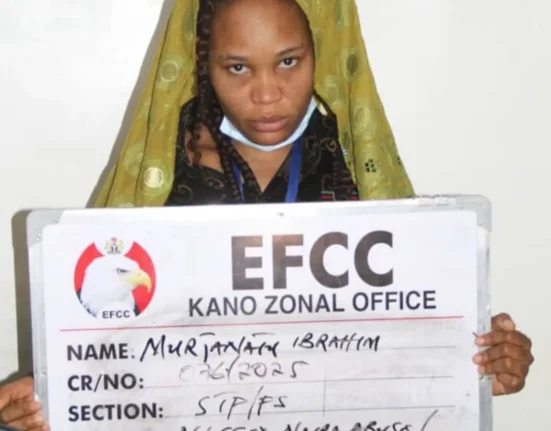 EFCC
EFCC
KANO ZONAL OFFICE
NAME: MURJANATU IBRAHIM
CR/NO: 076/2025
SECTION: STP/FS
NAIRA ABUSE/